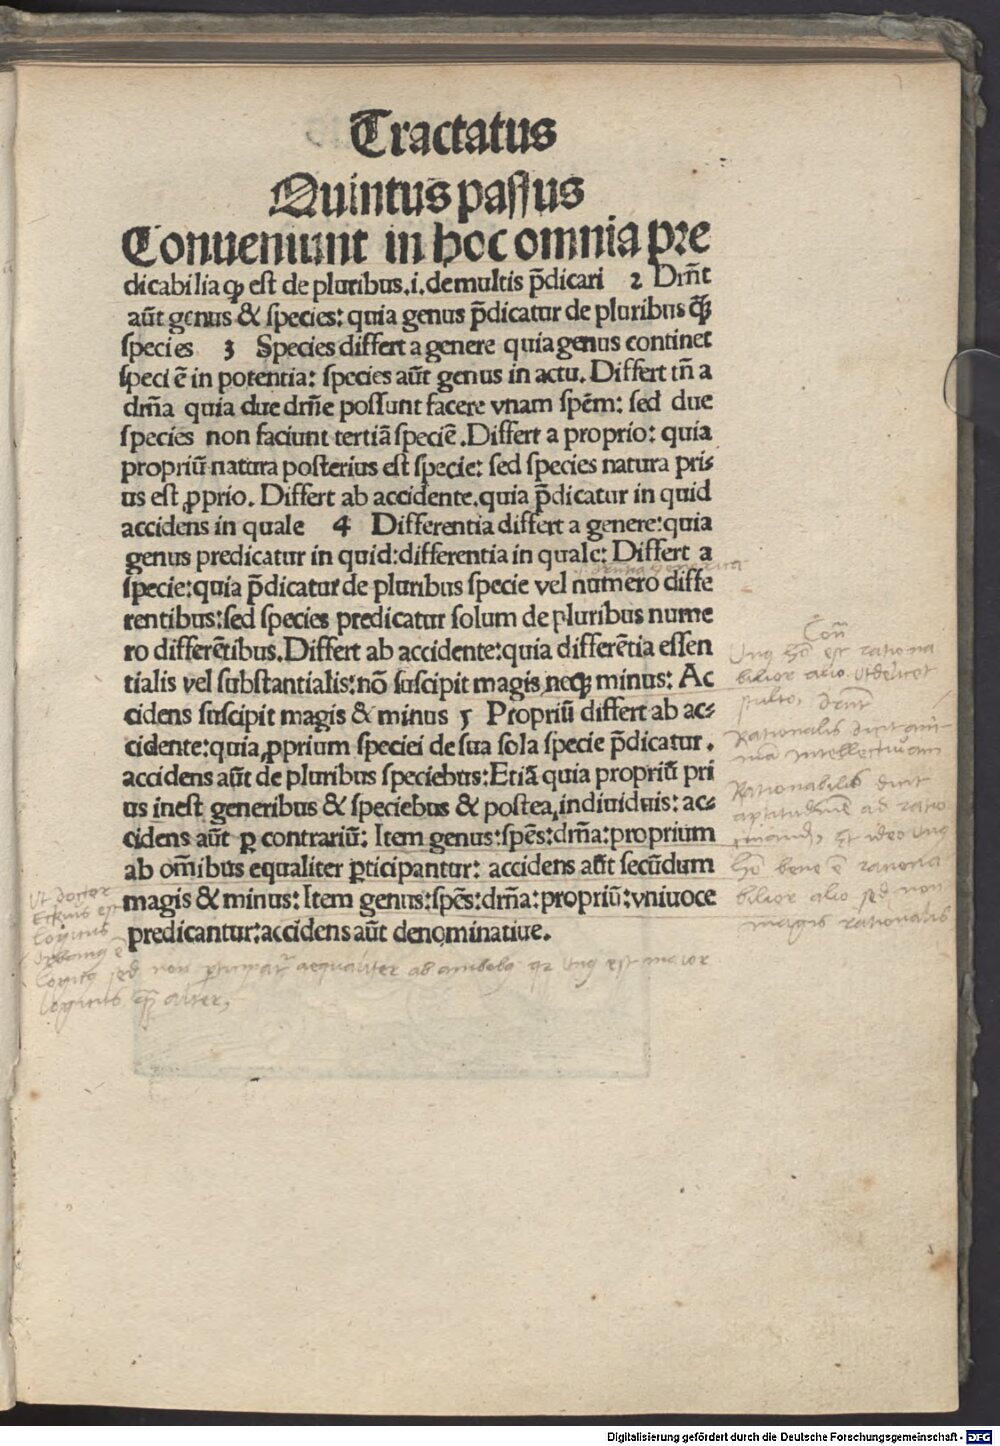 Tractatus
Quintus passus
Conueniunt in hoc omnia pre
dicabilia ꝙ est de pluribus .i. de multis p̄dicari 2 Drn̄t
aūt genus & species: quia genus p̄dicatur de pluribus ꝙ̄
species 3 Species differt a genere quia genus continet
speciē in potentia: species aūt genus in actu. Differt tn̄ a
drn̄a quia due drn̄e possunt facere vnam spēm: sed due
species non faciunt tertiā speciē. Differt a proprio: quia
propriū natura posterius est specie: sed species natura pri⸗
us est ꝓprio. Differt ab accidente. quia p̄dicatur in quid
accidens in quale 4 Differentia differt a genere: quia
genus predicatur in quid: differentia in quale: Differt a
specie: quia p̄dicatur de pluribus specie vel numero diffe
rentibus: sed species predicatur solum de pluribus nume
ro differētibus. Differt ab accidente: quia differētia essen
tialis vel substantialis: nō suscipit magis neqꝫ minus: Ac
cidens suscipit magis & minus 5 Propriū differt ab ac⸗
cidente: quia ꝓprium speciei de sua sola specie p̄dicatur.
accidens aūt de pluribus speciebus: Etiā quia propriū pri
us inest generibus & speciebus & postea indiuiduis: ac⸗
cidens aūt ꝑ contrariū: Item genus: spēs: drn̄a: proprium
ab om̄ibus equaliter ꝑticipantur: accidens aūt secūdum
magis & minus: Item genus: spēs: drn̄a: propriū: vniuoce
predicantur: accidens aūt denominatiue.
Rationalis dicit
intellectiuam
Rationabilis dicit
bilior alio sed non
magis rationalis
Vt doctor
est
logicus
sed non aequaliter ab ambobus est maior
logicus alter,
Digitalisierung gefördert durch die Deutsche Forschungsgemeinschaft - DFG